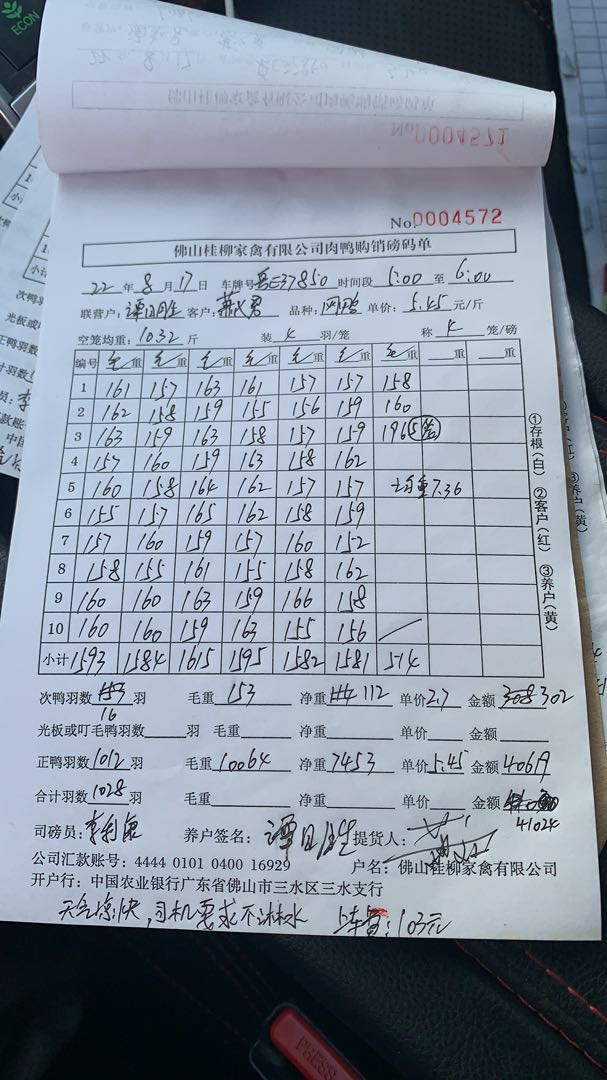 ECON
No 0004571
No. 0004572
佛山桂柳家禽有限公司肉鸭购销磅码单
22 年 8 月 17 日 车牌号 E37850 时间段 5:00 至 6:00
联营户: 谭日胜 客户: 品种: 单价: 5.45 元/斤
空笼均重: 1032 斤 装 4 羽/笼 称 4 笼/磅
编号 毛重 毛重 毛重 毛重 毛重 毛重 毛重 重 重
1 161 157 163 161 157 157 158
2 162 158 159 155 156 159 160
3 163 159 163 158 157 159 196 5笼
4 157 160 159 163 158 162
5 160 158 164 162 157 157 均重7.36
6 155 157 165 162 158 159
7 157 160 159 157 160 152
8 158 155 161 155 158 162
9 160 160 163 159 166 158
10 160 160 159 163 155 156
小计 1593 1584 1615 1595 1582 1581 514
①存根(白) ②客户(红) ③养户(黄)
次鸭羽数 16 羽 毛重 153 净重 112 单价 2.7 金额 308 302
光板或叮毛鸭羽数 羽 毛重 净重 单价 金额
正鸭羽数 1012 羽 毛重 10064 净重 7453 单价 5.45 金额 40619
合计羽数 1028 羽 毛重 净重 单价 金额
41024
司磅员: 李 养户签名: 谭日胜 提货人:
公司汇款账号: 4444 0101 0400 16929 户名: 佛山桂柳家禽有限公司
开户行: 中国农业银行广东省佛山市三水区三水支行
天气凉快,司机要求不淋水 上车费:103元
PRESS